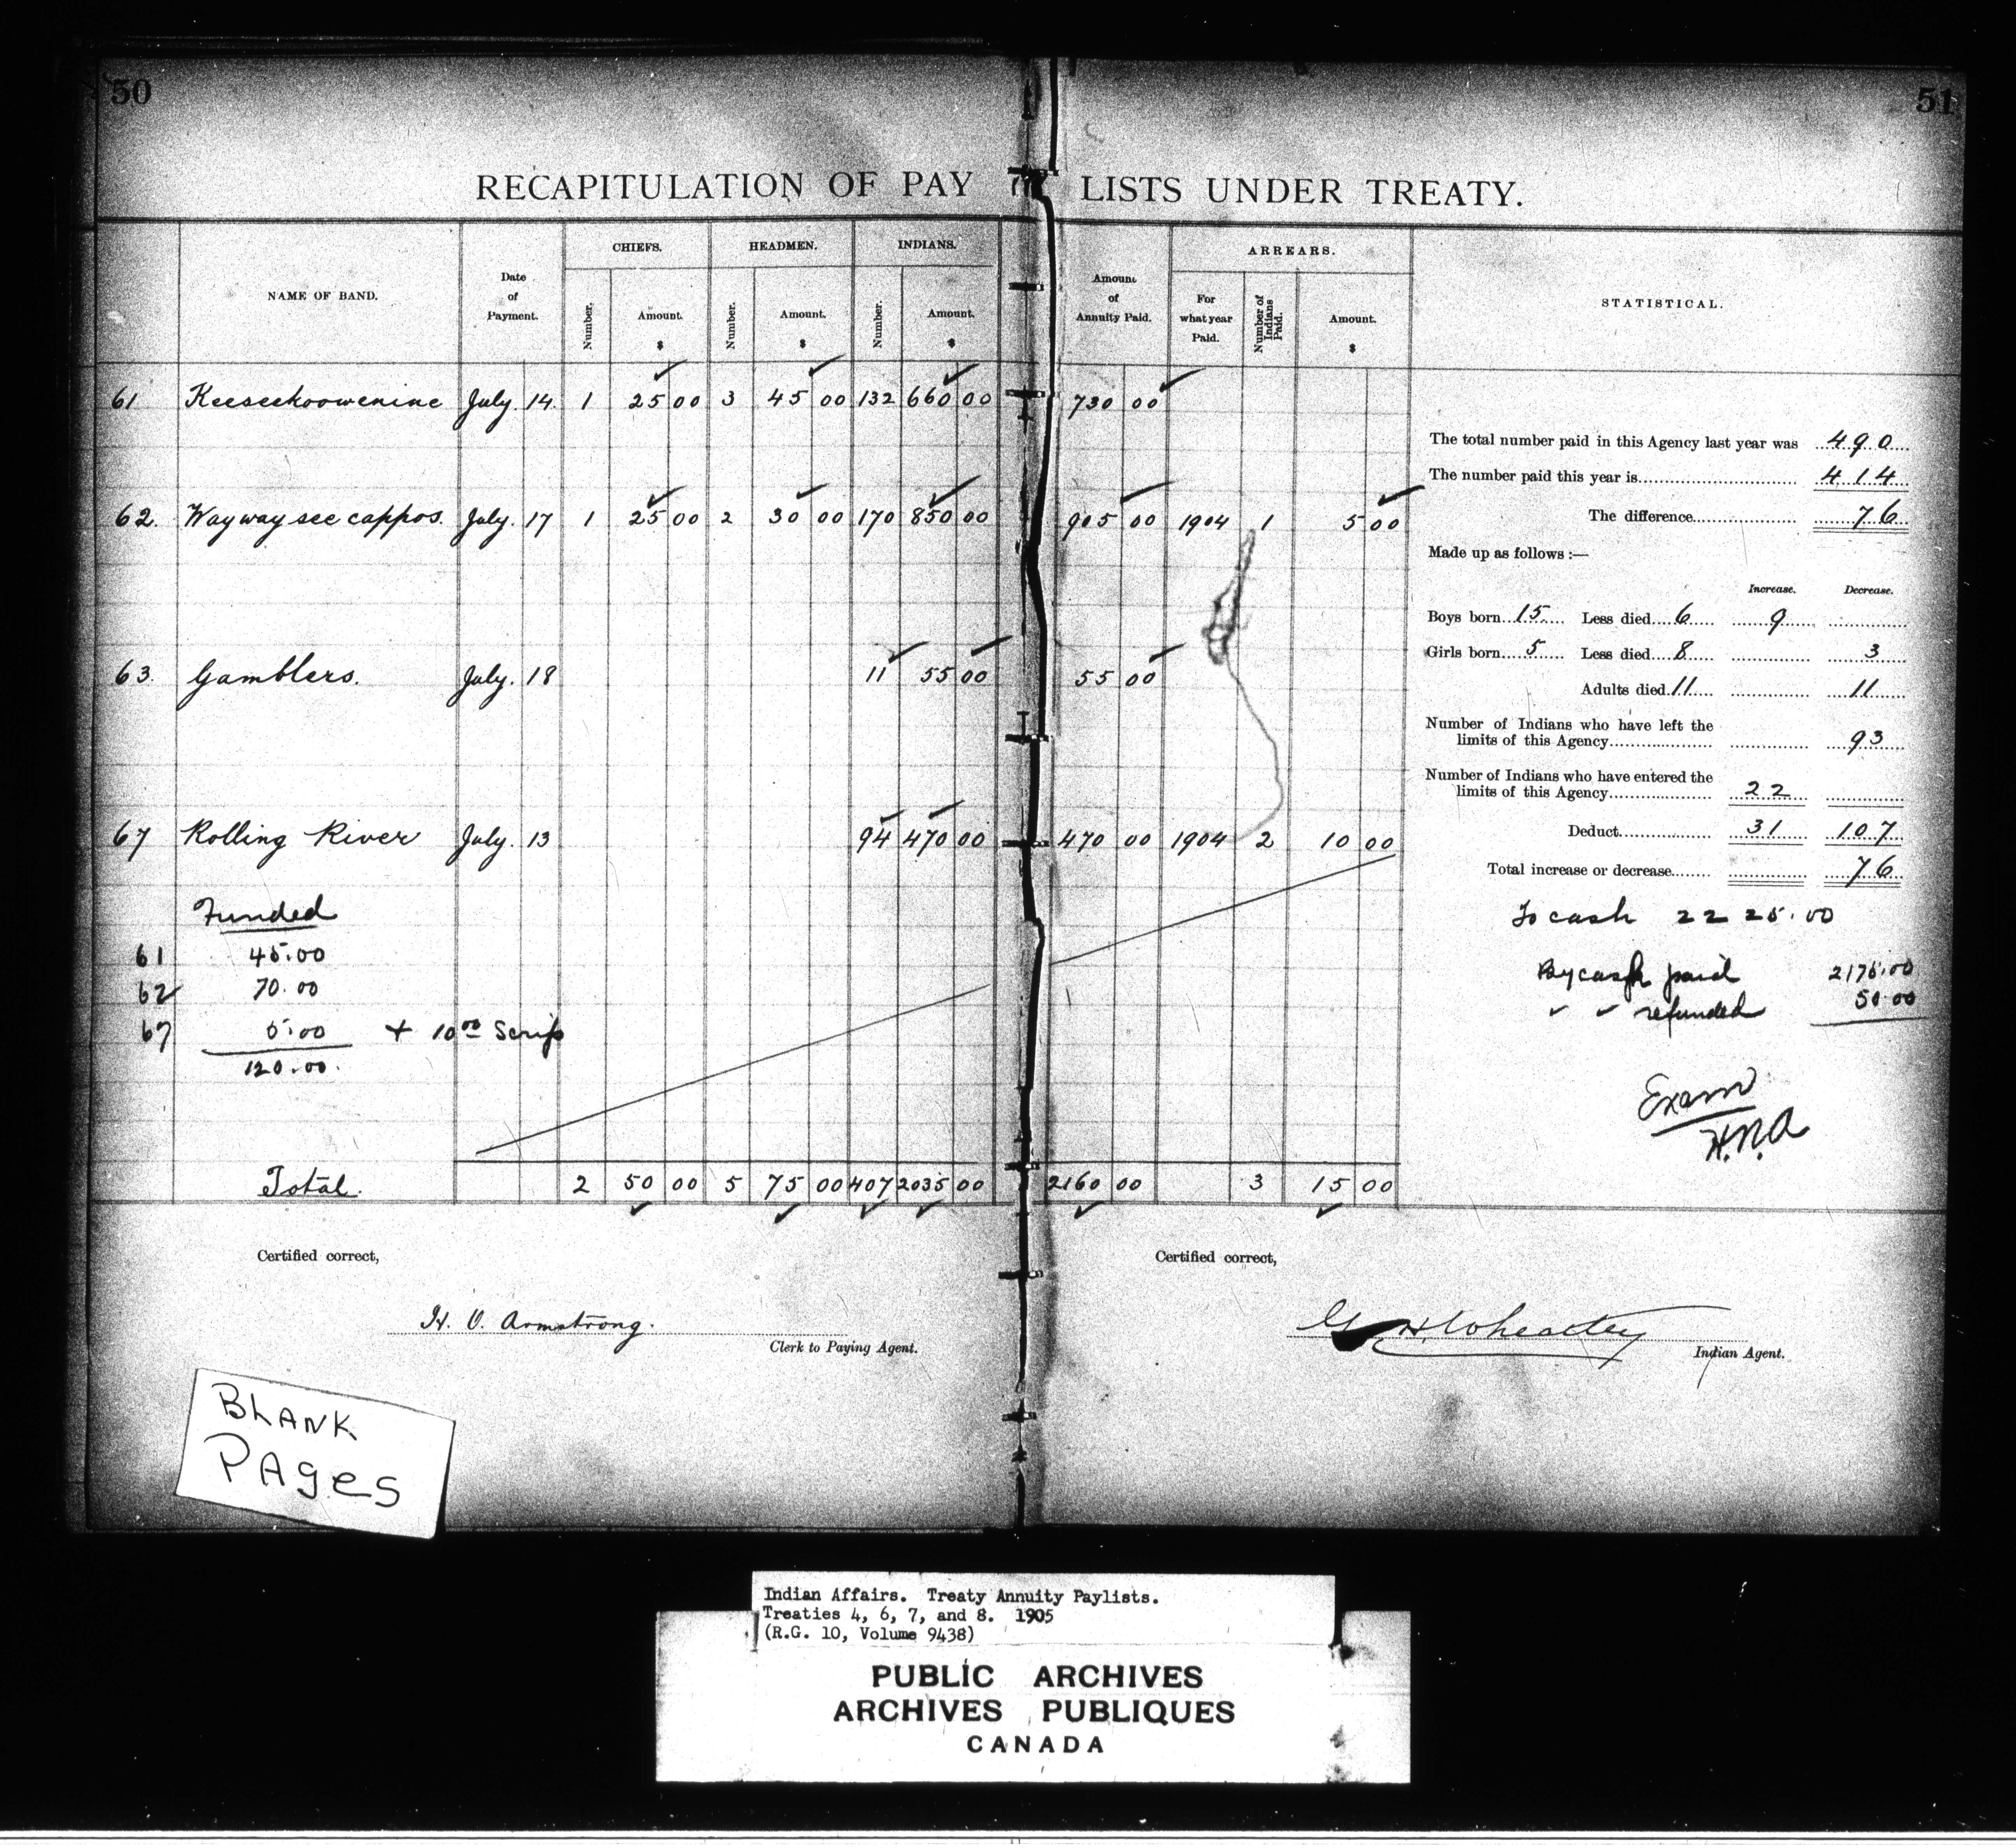 50
51
RECAPITULATION OF PAY LISTS UNDER TREATY.
NAME OF BAND.
Date of Payment.
CHIEFS. Number. Amount. $
HEADMEN. Number. Amount. $
INDIANS. Number. Amount. $
Amount of Annuity Paid.
ARREARS. For what year Paid. Number of Indians Paid. Amount. $
STATISTICAL.
61 Keeseekoowenine July. 14. 1 25 00 3 45 00 132 660 00 730 00
62. Waywayseecappos. July. 17 1 25 00 2 30 00 170 850 00 905 00 1904 1 5 00
63. Gamblers. July. 18 11 55 00 55 00
67 Rolling River July. 13 94 470 00 470 00 1904 2 10 00
Funded
61 45.00
62 70.00
67 5.00 + 10 00 Scrip
120.00.
Total. 2 50 00 5 75 00 407 2035 00 2160 00 3 15 00
The total number paid in this Agency last year was 490
The number paid this year is 414
The difference 76
Made up as follows :—
Increase. Decrease.
Boys born 15 Less died 6 9
Girls born 5 Less died 8 3
Adults died 11 11
Number of Indians who have left the
limits of this Agency 93
Number of Indians who have entered the
limits of this Agency 22
Deduct 31 107
Total increase or decrease 76
To cash 2225.00
By cash paid 2175.00
✓ ✓ refunded 50.00
Exam
H.N.A
Certified correct,
H. O. Armstrong.
Clerk to Paying Agent.
Certified correct,
G. H. Wheatley
Indian Agent.
BLANK
PAges
Indian Affairs. Treaty Annuity Paylists.
Treaties 4, 6, 7, and 8. 1905
(R.G. 10, Volume 9438)
PUBLIC ARCHIVES
ARCHIVES PUBLIQUES
CANADA